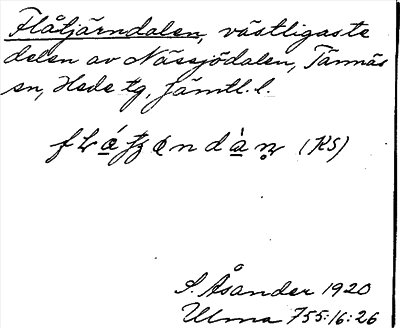 Flåtjärndalen, västligaste
delen av Nässjödalen, Tännäs
sn, Hede tg, Jämtl. l.
(KS)
S. Åsander 1920
Ulma 755:16:26